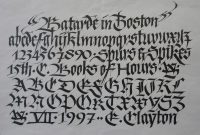 "Batarde in Boston"
abcdefghijklmnopqrstuvwxyz
1234567890 · Spurs & Spikes
15th · C. Books of Hours ·
ABCDEFGHIJKL
MNOPQRSTUVWXYZ
VII · 1997 · E. Clayton